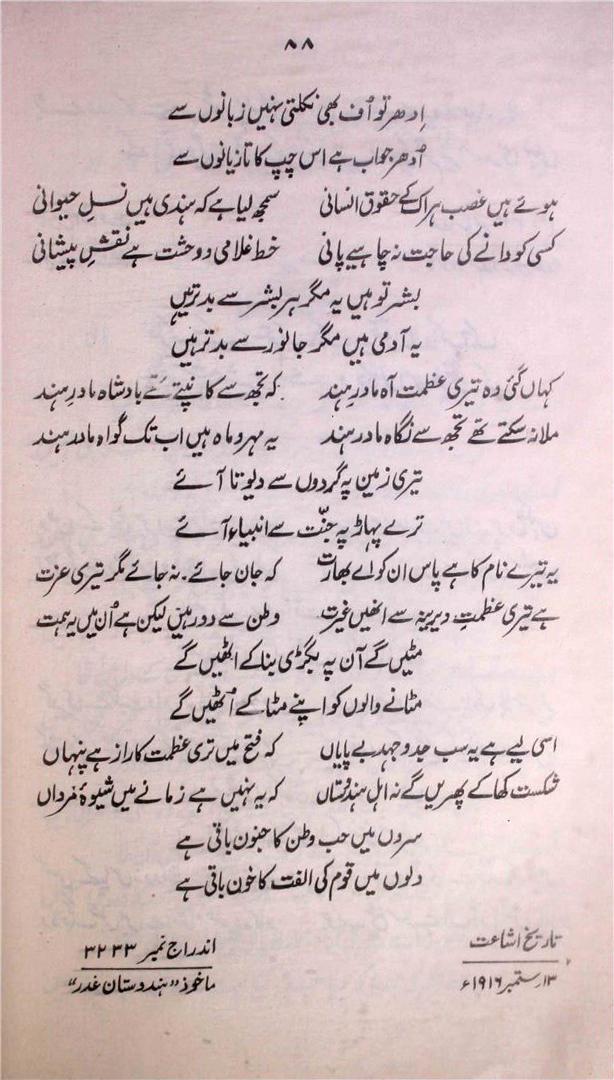 ۸۸
اِدھر تو اُف بھی نکلتی نہیں زبانوں سے
اُدھر جواب ہے اس چپ کا تازیانوں سے
ہوئے ہیں غصب ہر اک کے حقوق انسانی سمجھ لیا ہے کہ ہندی ہیں نسلِ حیوانی
کسی کو دانے کی حاجت نہ چاہیے پانی خط غلامی و وحشت ہے نقشِ پیشانی
بشر تو ہیں یہ مگر ہر بشر سے بدتر ہیں
یہ آدمی ہیں مگر جانور سے بدتر ہیں
کہاں گئی وہ تیری عظمت آہ مادرِ ہند کہ تجھ سے کانپتے تھے بادشاہ مادرِ ہند
ملا نہ سکتے تھے تجھ سے نگاہ مادر ہند یہ مہر و ماہ ہیں اب تک گواہ مادر ہند
تیری زمین پہ گردوں سے دیوتا آئے
ترے پہاڑ پہ جنّت سے انبیاء آئے
یہ تیرے نام کا ہے پاس ان کو اے بھارت کہ جان جائے۔ نہ جائے مگر تیری عزت
ہے تیری عظمتِ دیرینہ سے انھیں غیرت وطن سے دور ہیں لیکن ہے اُن میں یہ ہمت
مٹیں گے آن پہ بگڑی بنا کے اٹھیں گے
مٹانے والوں کو اپنے مٹا کے اُٹھیں گے
اسی لیے ہے یہ سب جد و جہد بے پایاں کہ فتح میں تری عظمت کا راز ہے پنہاں
شکست کھا کے پھریں گے نہ اہل ہندُستاں کہ یہ نہیں ہے زمانے میں شیوۂ مرداں
سروں میں حب وطن کا جنون باقی ہے
دلوں میں قوم کی الفت کا خون باقی ہے
تاریخ اشاعت اندراج نمبر ۳۲۳۳
۱۳؍ ستمبر ۱۹۱۶ء ماخوذ "ہندوستان غدر"